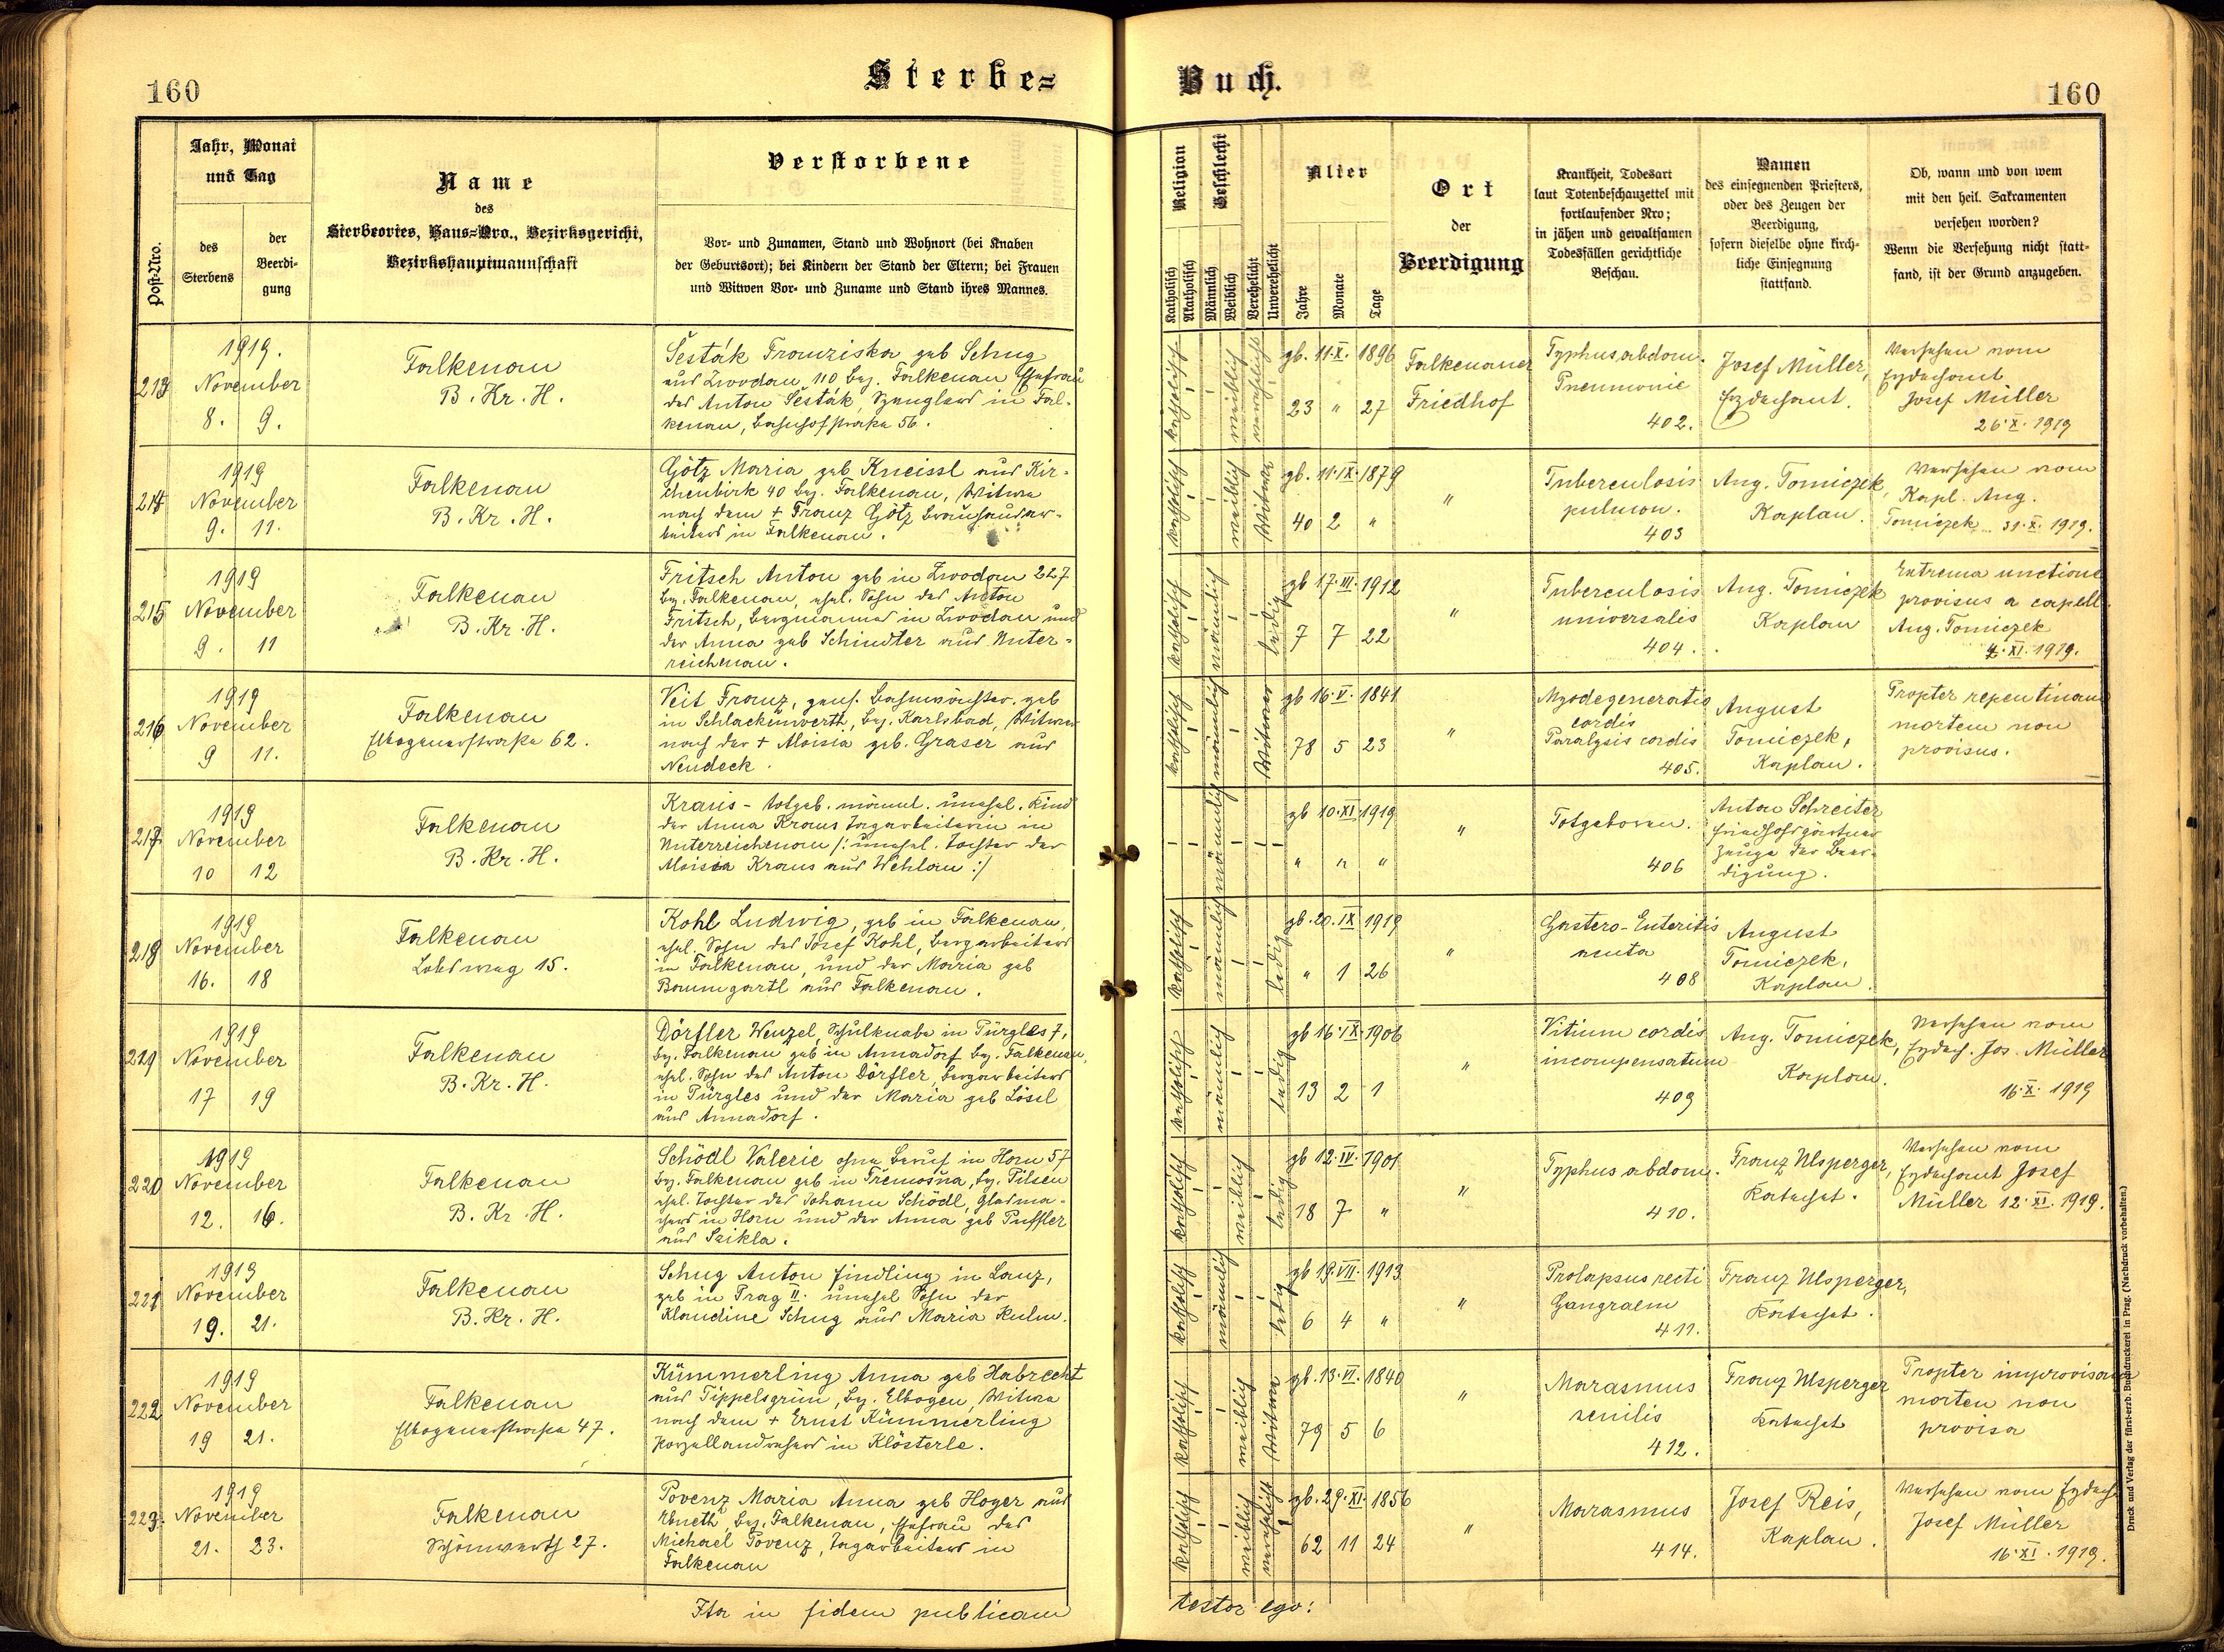 160
Sterbe=
Post-Nro.
Jahr, Monat
und Tag
des
Sterbens
der
Beerdi-
gung
Name
des
Sterbeortes, Haus-Nro., Bezirksgericht,
Bezirkshauptmannschaft
Verstorbene
Vor- und Zunamen, Stand und Wohnort (bei Knaben
der Geburtsort); bei Kindern der Stand der Eltern; bei Frauen
und Witwen Vor- und Zuname und Stand ihres Mannes.
213
1919.
November
8. 9.
Falkenau
B. Kr. H.
Šesták Franziska geb Schug
aus Zwodau 110 bez. Falkenau Ehefrau
des Anton Šesták, Spenglers in Fal-
kenau, Bahnhofstraße 56.
214
1919
November
9. 11.
Falkenau
B. Kr. H.
Götz Maria geb Kneissl aus Kir-
chenbirk 40 bez. Falkenau, Witwe
nach dem + Franz Götz Brauhausar-
beiters in Falkenau.
215
1919
November
9. 11
Falkenau
B. Kr. H.
Fritsch Anton geb in Zwodau 227
bez. Falkenau, ehel. Sohn des Anton
Fritsch, Bergmannes in Zwodau und
der Anna geb Schindler aus Unter-
reichenau.
216
1919
November
9 11.
Falkenau
Elbogenerstraße 62.
Veit Franz, pens. Bahnwächter. geb
in Schlackenwerth, bez. Karlsbad, Witwer
nach der + Aloisia geb. Graser aus
Neudeck.
217
1919
November
10 12
Falkenau
B. Kr. H.
Kraus - totgeb. männl. unehel. Kind
der Anna Kraus Tagarbeiterin in
Unterreichenau /: unehel. Tochter der
Aloisia Kraus aus Wehlau :/
218
1919
November
16. 18
Falkenau
Lobsweg 15.
Kohl Ludwig, geb in Falkenau,
ehel. Sohn des Josef Kohl, Bergarbeiters
in Falkenau, und der Maria geb
Baumgartl aus Falkenau.
219
1919
November
17 19
Falkenau
B. Kr. H.
Dörfler Wenzel, Schulknabe in Pürgles 7,
bez. Falkenau geb in Annadorf bez. Falkenau,
ehel. Sohn des Anton Dörfler, Bergarbeiters
in Pürgles und der Maria geb Lössl
aus Annadorf.
220
1919
November
12. 16.
Falkenau
B. Kr. H.
Schödl Valerie ohne Beruf in Horn 57
bez. Falkenau geb in Třemošna, bez. Pilsen
ehel. Tochter des Johann Schödl, Glasma-
chers in Horn und der Anna geb Puffler
aus Saikla.
221
1919
November
19. 21.
Falkenau
B. Kr. H.
Schug Anton Findling in Lanz,
geb in Prag II. unehel Sohn der
Klaudine Schug aus Maria Kulm.
222
1919
November
19 21.
Falkenau
Elbogenerstraße 47.
Kümmerling Anna geb Habrecht
aus Tippelsgrün, bez. Elbogen, Witwe
nach dem + Ernst Kümmerling
Porzellandrehers in Klösterle.
223.
1919
November
21. 23.
Falkenau
Schönwerth 27.
Povenz Maria Anna geb Hoyer aus
Ebneth, bez. Falkenau, Ehefrau des
Michael Povenz, Tagarbeiters in
Falkenau
Ita in fidem publicam
Buch.
160
Religion
Katholisch
Akatholisch
Geschlecht
Männlich
Weiblich
Verehelicht
Unverehelicht
Alter
Jahre
Monate
Tage
Ort
der
Beerdigung
Krankheit, Todesart
laut Totenbeschauzettel mit
fortlaufender Nro;
in jähen und gewaltsamen
Todesfällen gerichtliche
Beschau.
Namen
des einsegnenden Priesters,
oder des Zeugen der
Beerdigung,
sofern dieselbe ohne kirch-
liche Einsegnung
stattfand.
Ob, wann und von wem
mit den heil. Sakramenten
versehen worden?
Wenn die Versehung nicht statt-
fand, ist der Grund anzugeben.
katholisch
weiblich
verehelicht
gb. 11. X. 1896
23 " 27
Falkenauer
Friedhof
Typhus abdom.
Pneumonie
402.
Josef Müller,
Erzdechant.
Versehen vom
Erzdechant
Josef Müller
26. X. 1919
katholisch
weiblich
Witwe
gb. 11. IX. 1879
40 2 "
"
Tuberculosis
pulmon.
403
Aug. Tomiczek,
Kaplan.
Versehen vom
Kapl. Aug.
Tomiczek 31. X. 1919.
katholisch
männlich
ledig
gb 17. III. 1912
7 7 22
"
Tuberculosis
universalis
404.
Aug. Tomiczek
Kaplan
Extrema unctione
provisus a capell.
Aug. Tomiczek
4. XI. 1919.
katholisch
männlich
Witwer
gb 16. V. 1841
78 5 23
"
Myodegeneratio
cordis
Paralysis cordis
405.
August
Tomiczek,
Kaplan.
Propter repentinam
mortem non
provisus.
männlich
gb 10. XI. 1919
" " "
"
Totgeboren.
406
Anton Schreiter
Friedhofsgärtner
Zeuge der Beer-
digung.
katholisch
männlich
ledig
gb. 20. IX 1919
" 1 26
"
Gastero-Enteritis
acuta
408
August
Tomiczek,
Kaplan.
katholisch
männlich
ledig
gb 16. IX. 1906
13 2 1
"
Vitium cordis
incompensatum
409
Aug. Tomiczek,
Kaplan.
Versehen vom
Erzdech. Jos. Müller
16. X. 1919
katholisch
weiblich
ledig
gb 12. IV. 1901
18 7 "
"
Typhus abdom.
410.
Franz Ulsperger,
Katechet.
Versehen vom
Erzdechant Josef
Müller 12. XI. 1919.
katholisch
männlich
ledig
gb 19. VII. 1913
6 4 "
"
Prolapsus recti
Gangraen
411.
Franz Ulsperger,
Katechet.
katholisch
weiblich
Witwe
gb. 13. VI. 1840
79 5 6
"
Marasmus
senilis
412.
Franz Ulsperger
Katechet
Propter improvisam
mortem non
provisa
katholisch
weiblich
verehelicht
gb. 29. XI. 1856
62 11 24
"
Marasmus
414.
Josef Reis,
Kaplan.
Versehen vom Erzdech.
Josef Müller
16. XI. 1919.
testor ego:
Druck und Verlag der fürst-erzb. Buchdruckerei in Prag. (Nachdruck vorbehalten.)